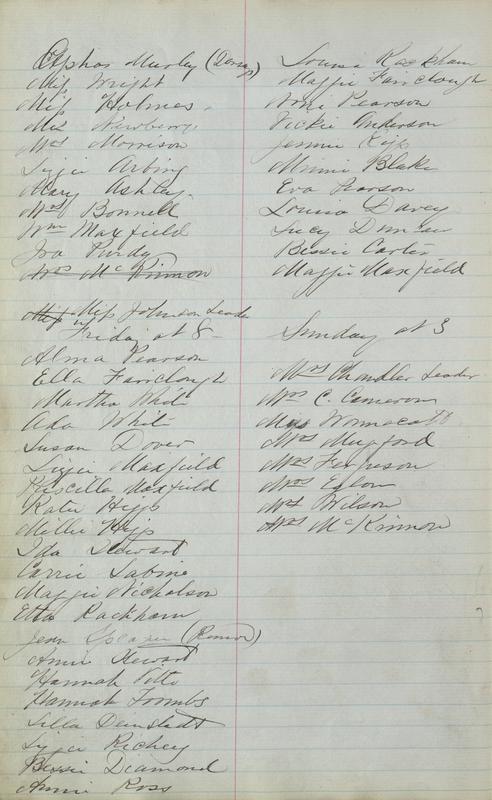 Murley
Miss Wright
Miss Holmes
Miss Newberry
Mrs Morrison
Lizzie Arbing
Mary Ashley
Mrs Bonnell
Wm Maxfield
Iva Purdy
Mrs McKinnon
Miss Johnson Leader
Friday at 8
Alma Pearson
Ella Fairclough
Martha White
Ada White
Susan Dover
Lizzie Maxfield
Priscilla Maxfield
Katie Hipp
Millie Hipp
Ida Stewart
Carrie Sabine
Maggie Nicholson
Etta Rackham
Annie Stewart
Hannah
Hannah Toombs
Lizzie Richey
Bessie Diamond
Annie Ross
Louisa Rackham
Maggie Fairclough
Pearson
Vickie Anderson
Jennie
Minnie Blake
Eva Pearson
Louisa Davey
Lucy Duncan
Bessie Carter
Maggie Maxfield
Sunday at 3
Mrs Chandler Leader
Mrs C. Cameron
Miss Wonnacott
Mrs Mugford
Mrs Ferguson
Mrs
Mrs Wilson
Mrs McKinnon